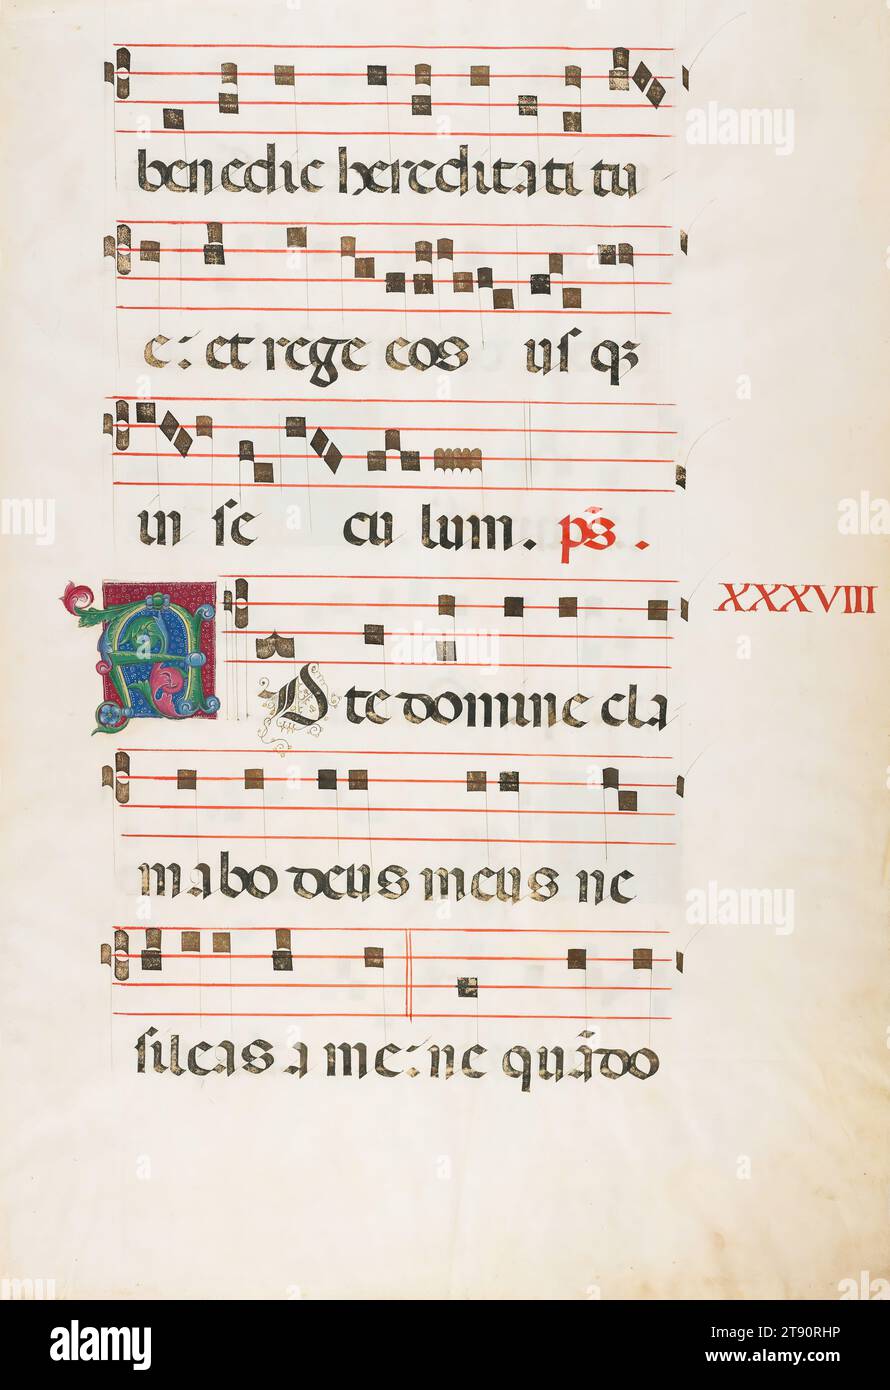 benedic hereditati tu
e: et rege eos usq3
in se culum. ps̄.
XXXVIII
AD te domine cla
mabo deus meus ne
sileas a me: ne quādo
alamy
Image ID: 2T90RHP
www.alamy.com